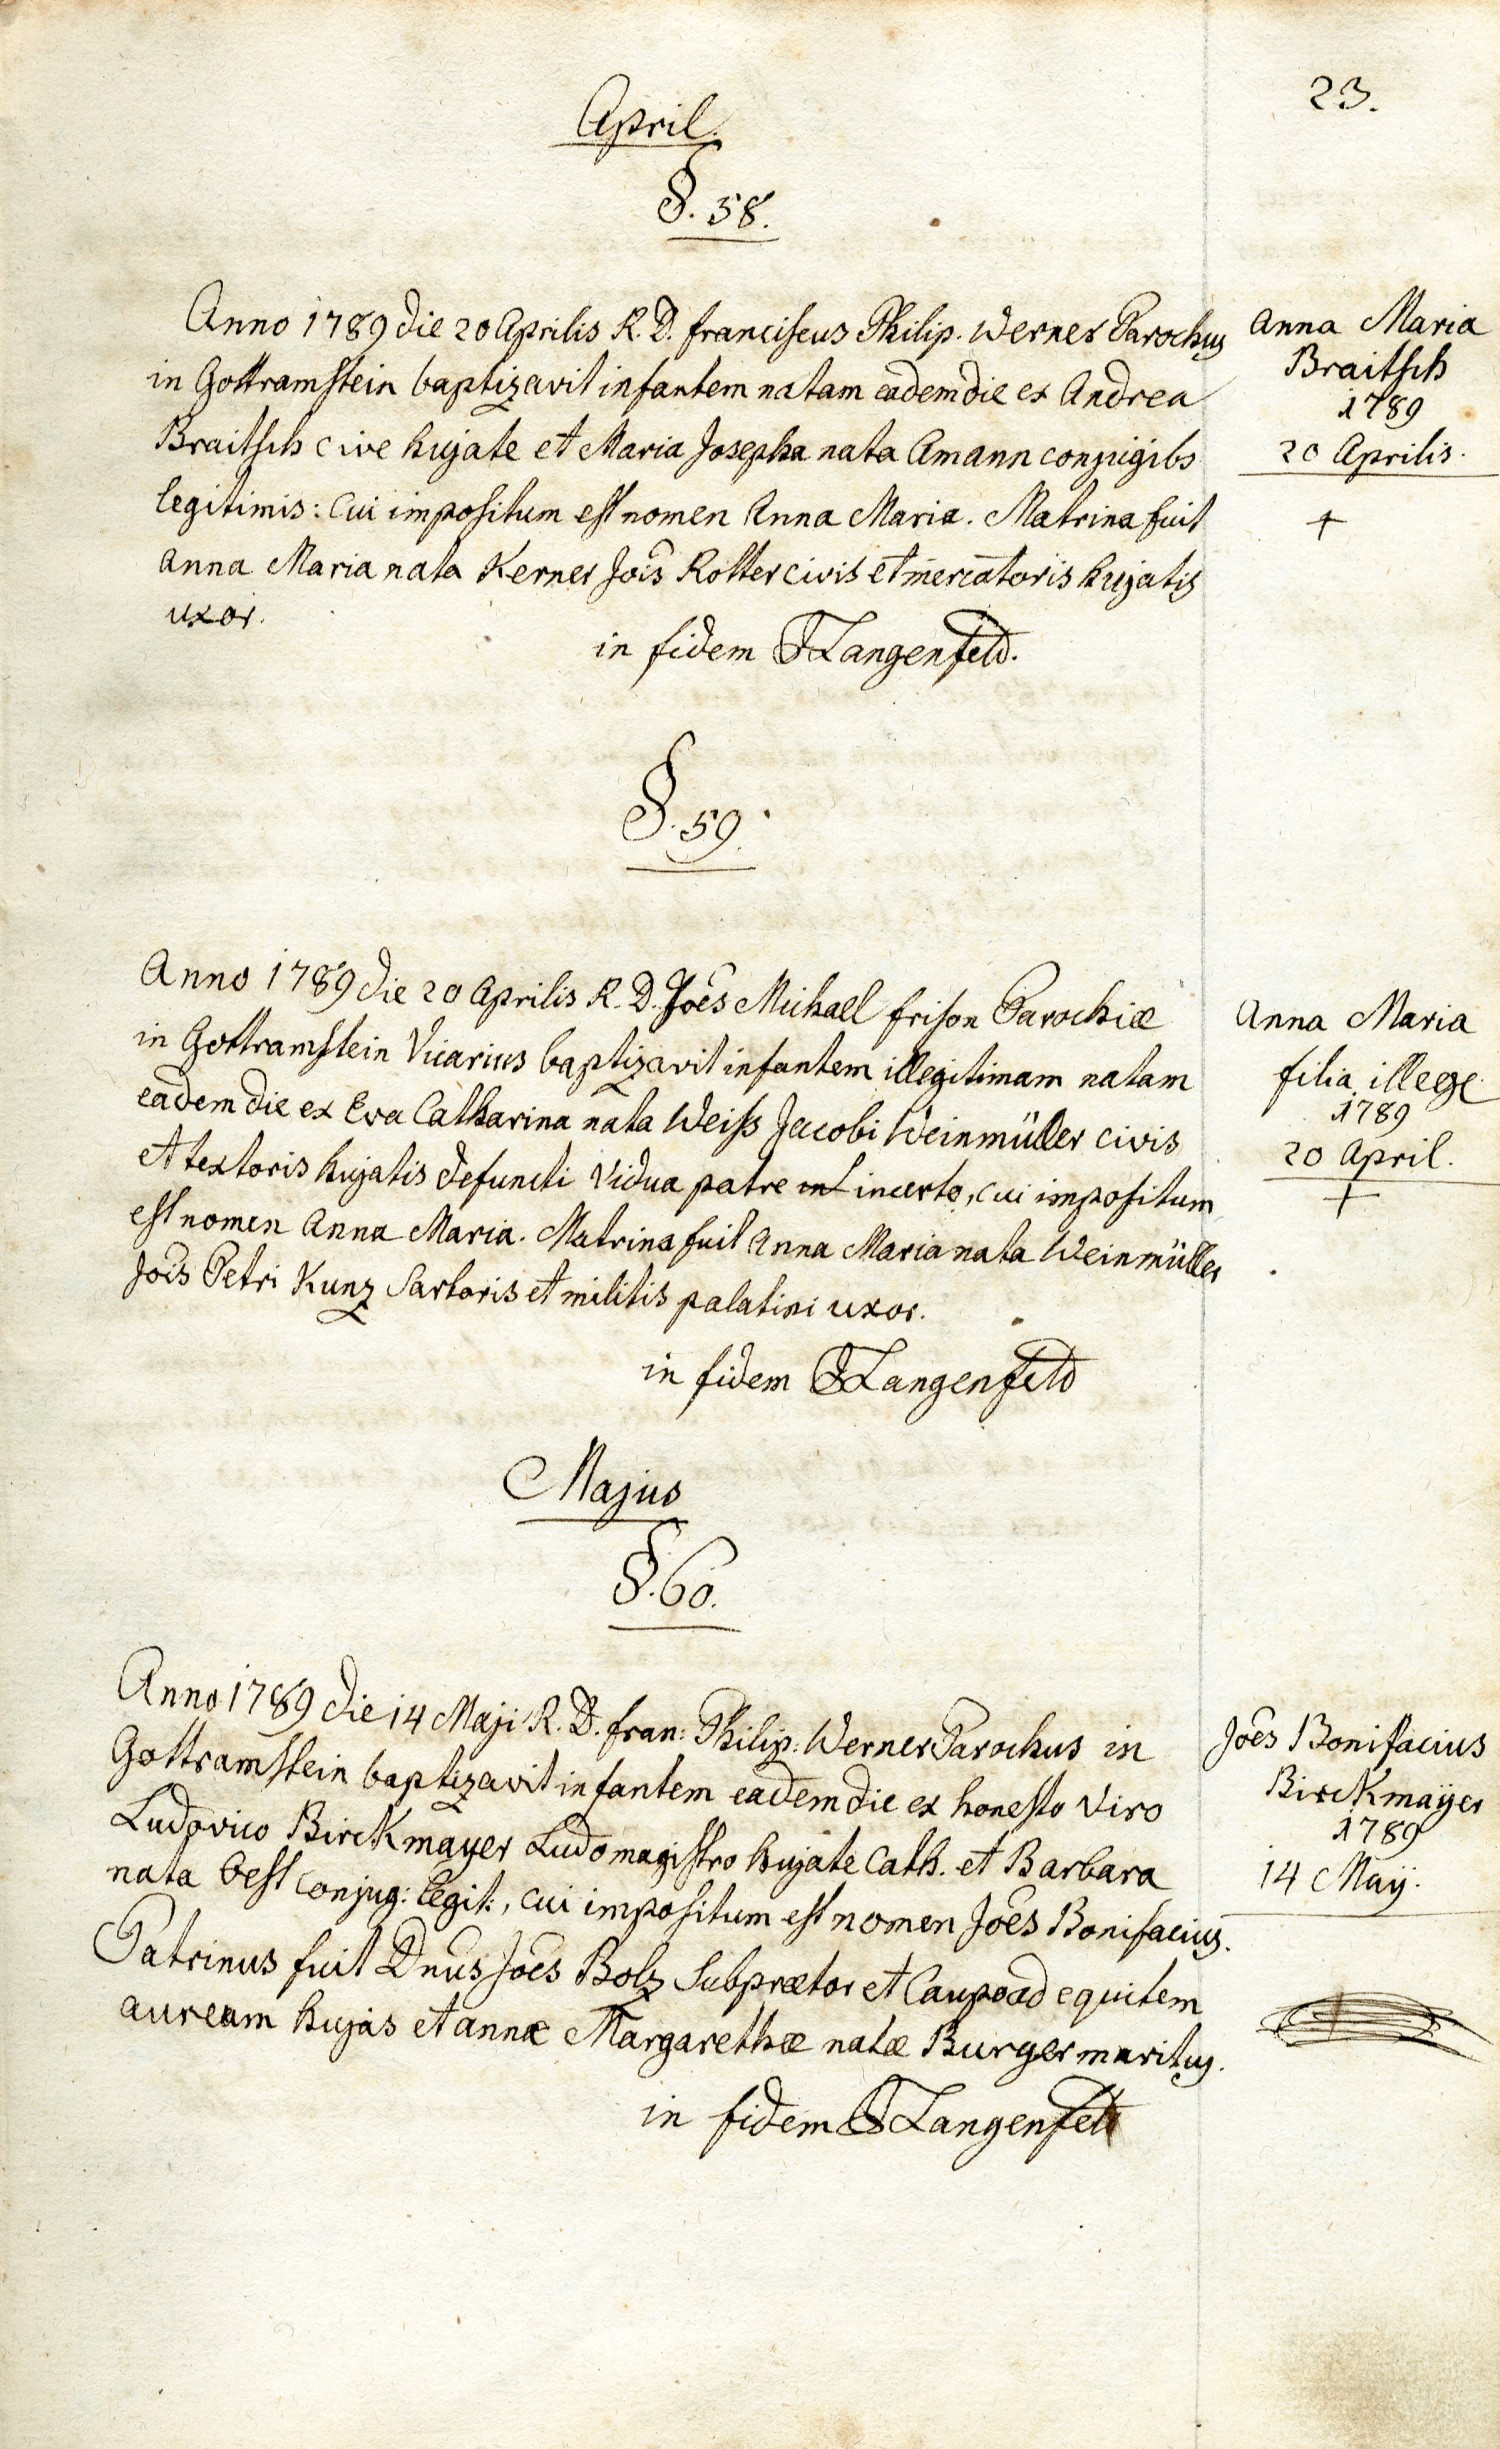 23.
April.
§. 58.
Anno 1789 die 20 Aprilis R. D. franciscus Philip. Werner Parochus
in Gottramstein baptizavit infantem natam eadem die ex Andrea
Braitsch cive hujate et Maria Josepha nata Amann conjugibs
legitimis: cui impositum est nomen Anna Maria. Matrina fuit
Anna Maria nata Kerner Jois Rotter civis et mercatoris hujatis
uxor.
in fidem Langenfeld.
Anna Maria
Braitsch
1789
20 Aprilis.
+
§. 59.
Anno 1789 die 20 Aprilis R. D. Joes Michael frison Parochiæ
in Gottramstein Vicarius baptizavit infantem illegitimam natam
eadem die ex Eva Catharina nata Weiss Jacobi Weinmüller civis
et textoris hujatis defuncti vidua patre incerto, cui impositum
est nomen Anna Maria. Matrina fuit Anna Maria nata Weinmüller
Jois Petri Kunz Sartoris et militis palatini uxor.
in fidem Langenfeld
Anna Maria
filia illege.
1789
20 April.
+
Majus
§. 60.
Anno 1789 die 14 Maji R. D. fran: Philip: Werner Parochus in
Gottramstein baptizavit infantem eadem die ex honesto viro
Ludovico Birckmayer Ludomagistro hujate Cath. et Barbara
nata Best conjug: legit:, cui impositum est nomen Joes Bonifacius.
Patrinus fuit Dnus Joes Bolz Subprætor et Caupo ad equitem
auream hujas et annæ Margarethæ natæ Burger maritus.
in fidem Langenfeld
Joes Bonifacius
Birckmaÿer
1789
14 Maÿ.